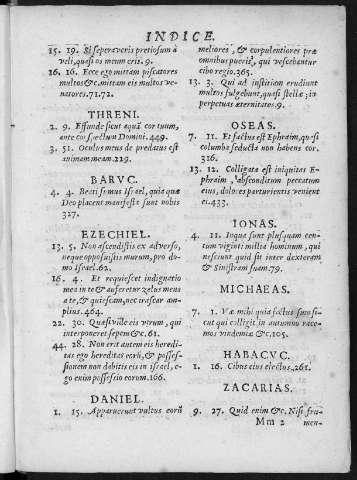 INDICE.
15. 19. Si separaveris pretiosum à
veli, quasi os meum eris. 9.
16. 16. Ecce ego mittam piscatores
multos &c. mittam eis multos ve-
natores. 71. 72.
THRENI.
2. 9. Effunde sicut aquã cor tuum,
ante conspectum Domini. 449.
3. 51. Oculus meus de prædatus est
animam meam. 229.
BARVC.
4. 4. Beati sumus Israel, quia quæ
Deo placent manifesta sunt nobis
327.
EZECHIEL.
13. 5. Non ascendistis ex adverso,
neque opposuistis murum, pro do-
mo Israel. 62.
16. 4. Et requiescet indignatio
mea in te & auferetur zelus meus
a te, & quiescam, nec irascar am-
plius. 464.
22. 30. Quæsivi de eis virum, qui
interponeret sepem & c. 61.
44. 28. Non erit autem eis heredi-
tas ego hereditas eorũ, & posses-
sionem non dabitis eis in Israel, e-
go enim possessio eorum. 166.
DANIEL.
1. 15. Apparuerunt vultus eorũ
meliores, & corpulentiores præ
omnibus pueris, qui vescebantur
cibo regio. 365.
13. 3. Qui ad institiam erudiunt
multos fulgebunt, quasi stellæ; in
perpetuas æternitates. 9.
OSEAS.
7. 11. Et factus est Ephraim, quasi
columba seducta non habens cor.
316.
13. 12. Colligata est iniquitas E-
phraim, absconditum peccatum
eius, dolores parturientis venient
ei. 433.
IONAS.
4. 11. In qua sunt plusquam cen-
tum viginti millia hominum, qui
nesciunt quid sit inter dexteram
& sinistram suam. 79.
MICHAEAS.
7. 1. Væ mihi quia factus sum si-
cut qui colligit in autumno race-
mos vindemiæ &c. 105.
HABACVC.
1. 16. Cibus eius electus. 261.
ZACARIAS.
9. 27. Quid enim &c. Nisi fru-
Mm 2 men-